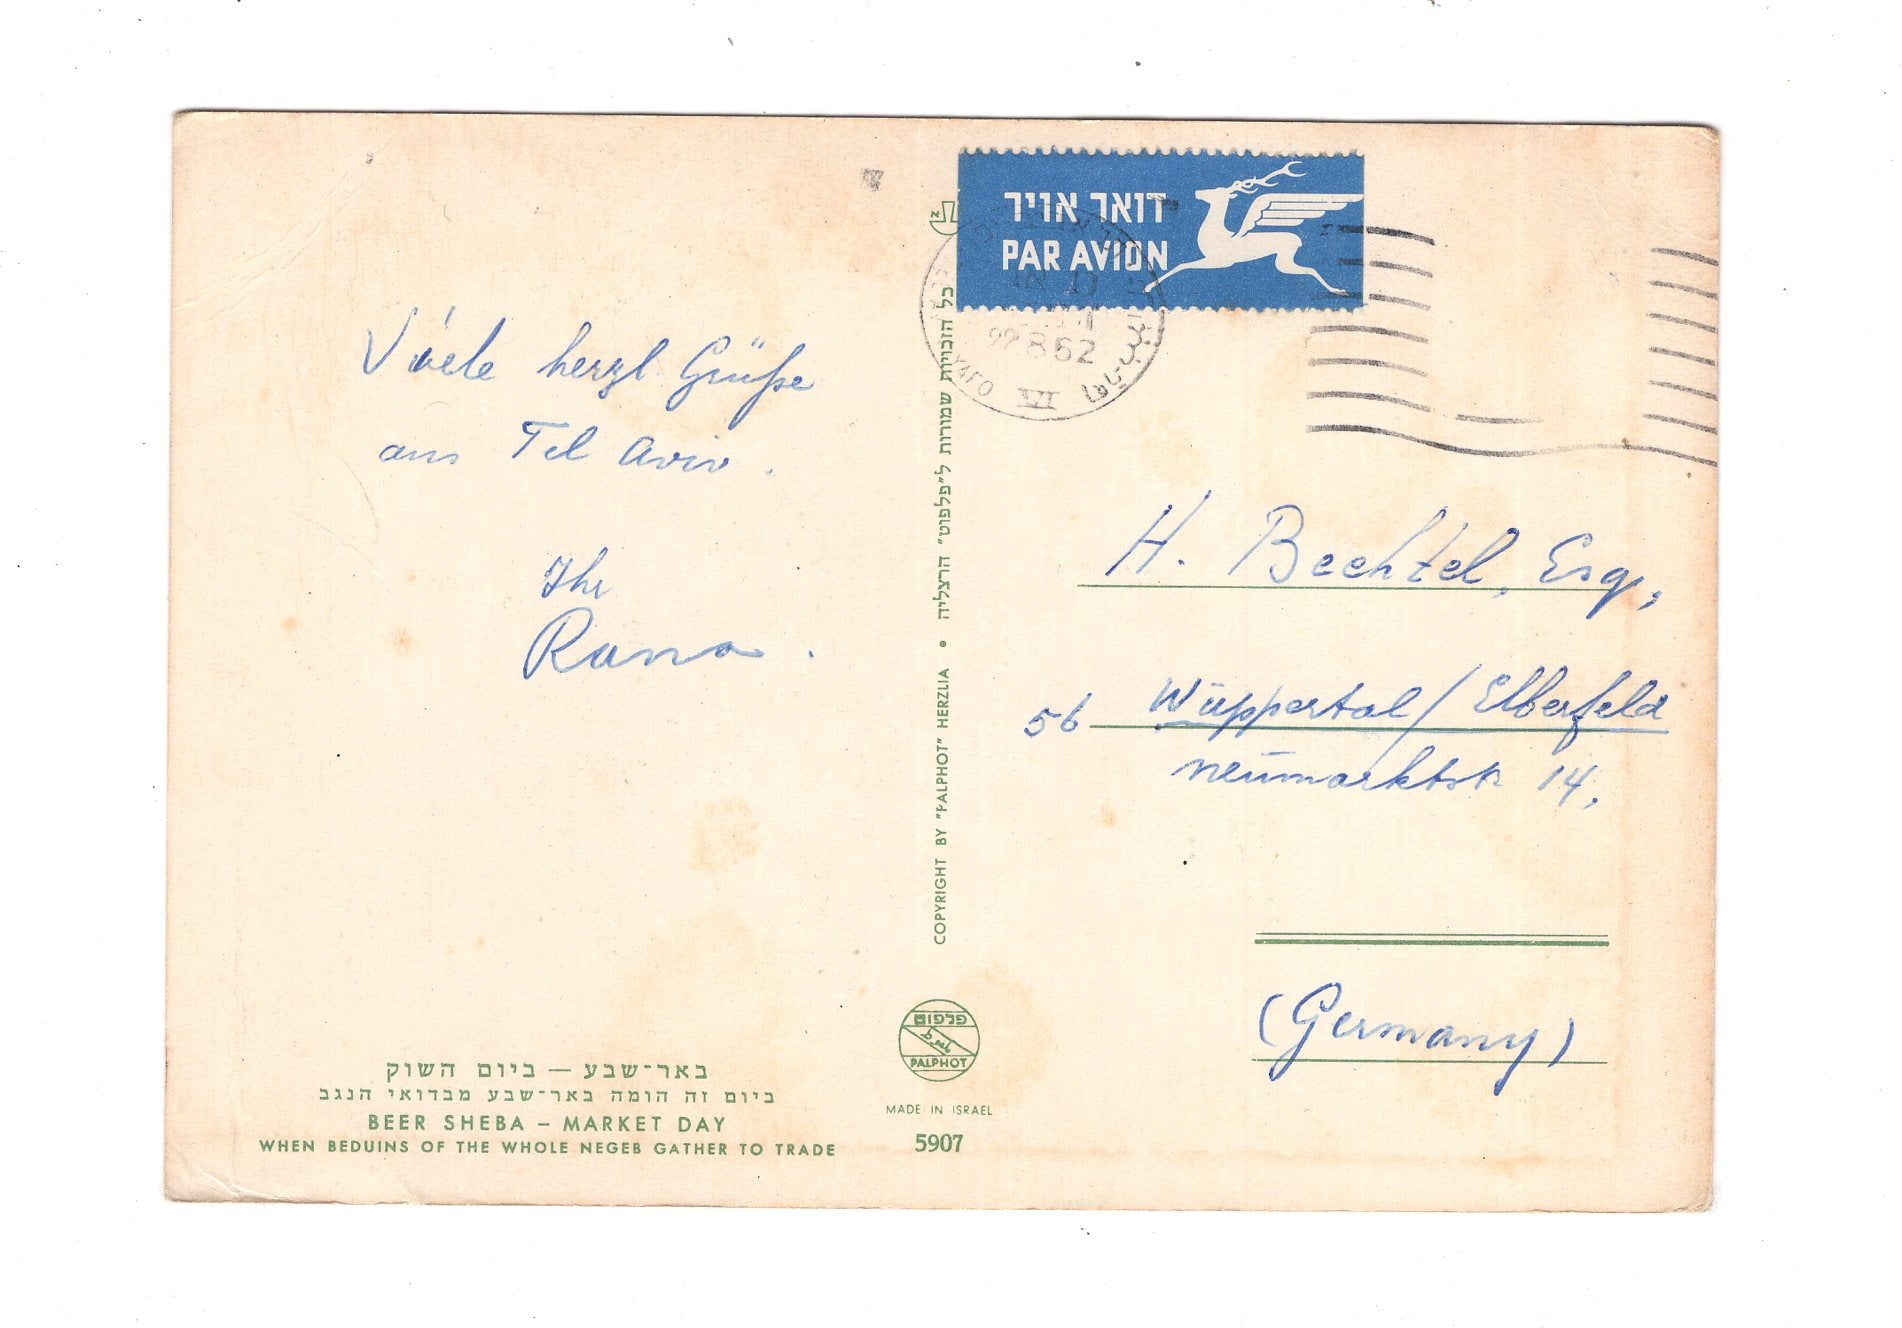 דואר אויר
PAR AVION
22 8 62
YAFO
VI
Viele herzl Grüße
aus Tel Aviv.
Ihr
H. Bechtel, Esq,
56 Wuppertal / Elberfeld
Neumarktstr 14,
(Germany)
כל הזכויות שמורות ל״פלפוט״ הרצליה
COPYRIGHT BY "PALPHOT" HERZLIA
פלפוט
PALPHOT
MADE IN ISRAEL
5907
באר־שבע — ביום השוק
ביום זה הומה באר־שבע מבדואי הנגב
BEER SHEBA – MARKET DAY
WHEN BEDUINS OF THE WHOLE NEGEB GATHER TO TRADE